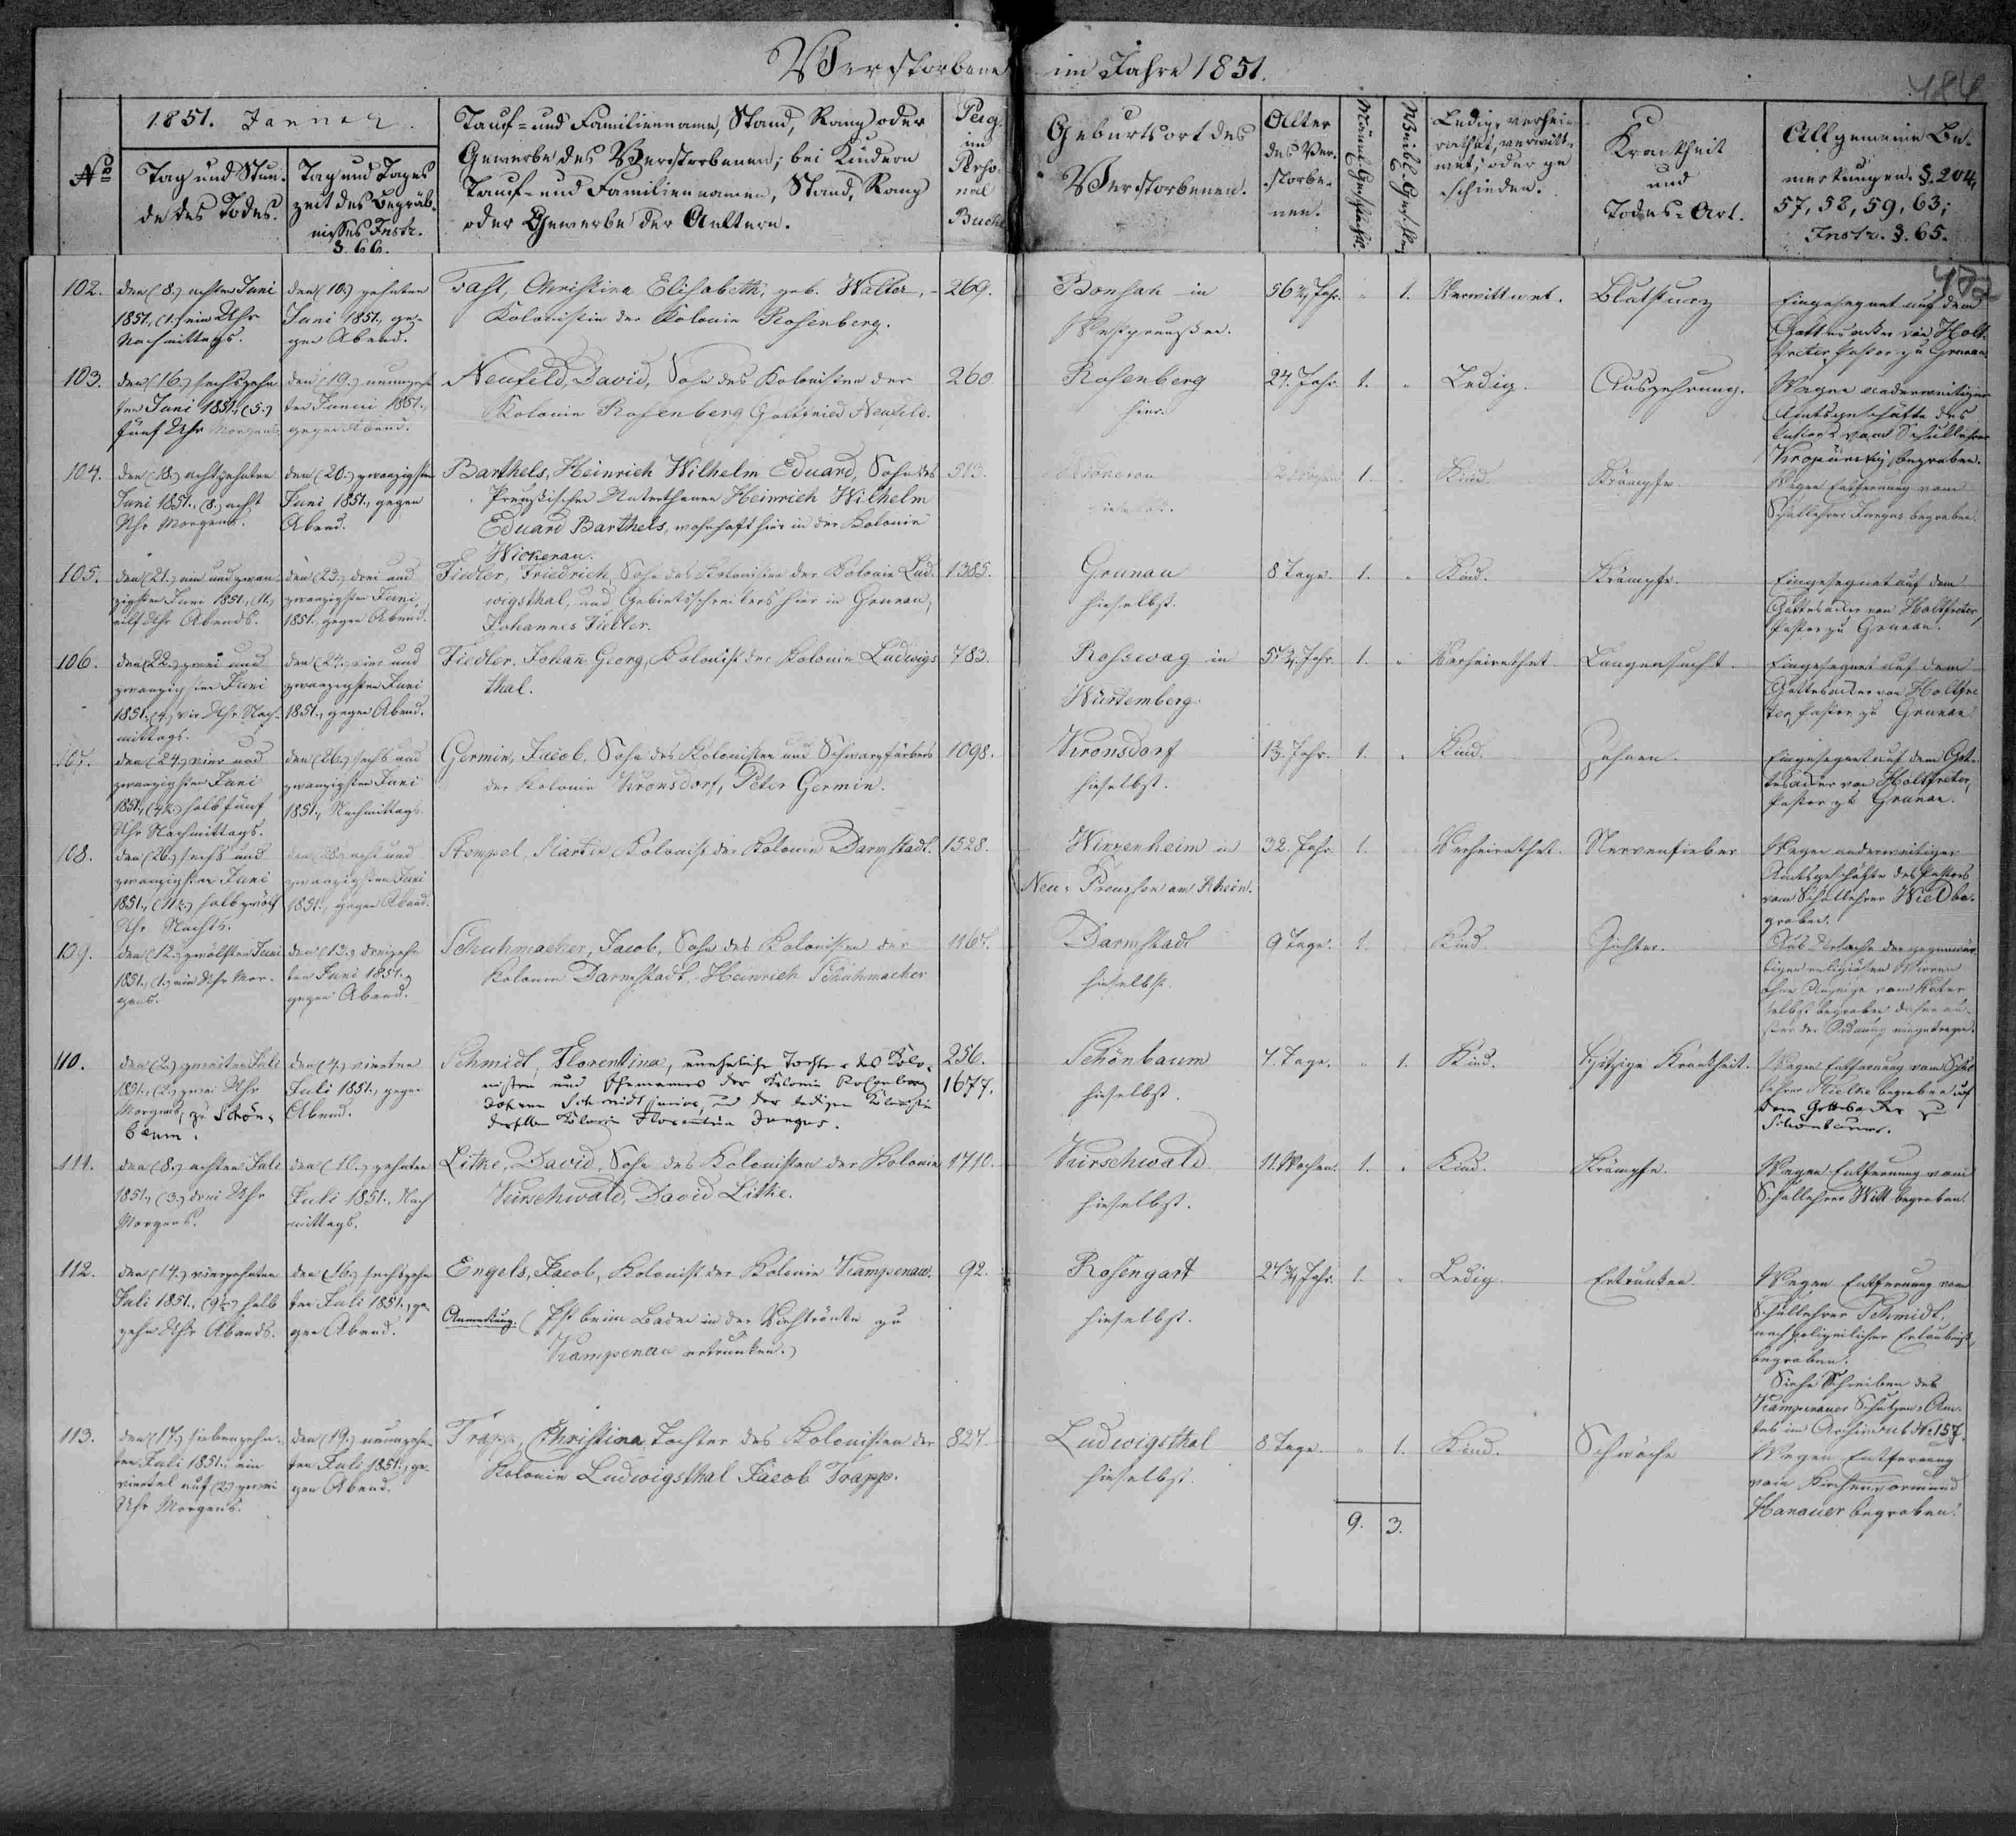 Verstorbene im Jahre 1851.
184
No
1851. Jannar.
Tag und Stun-
de des Todes.
Tag und Tages
zeit des Begräb-
nisses Instr.
§. 66.
Tauf- und Familienname, Stand, Rang oder
Gewerbe des Verstorbenen; bei Kindern
Tauf- und Familiennamen, Stand, Rang
oder Gewerbe der Aeltern.
Pag.
im
Perso-
nal
Buche
Geburtsort des
Verstorbenen.
Alter
des Ver-
storbe-
nen.
Männl. Geschlecht.
Weibl. Geschl.
Ledig, verhei-
rathet, verwitt-
wet; oder ge
schieden.
Krankheit
und
Todes-Art.
Allgemeine Be-
merkungen. §. 204,
57, 58, 59, 63;
Instr. §. 65.
102.
den (8.) achten Juni
1851., (1.) ein Uhr
Nachmittags.
den (10.) zehnten
Juni 1851., ge-
gen Abend.
Fast, Christina Elisabeth, geb. Walter,
Kolonistin der Kolonie Rosenberg.
269.
in
Westpreußen.
56 Jahr.
1.
Verwittwet.
Blutsturz
Eingesegnet auf dem
Gottesacker von Holt-
freter, Pastor zu Grunau.
103.
den (16.) sechszehn
ten Juni 1851., (5.)
fünf Uhr Morgens.
den (19.) neunzehn
ten Juni 1851.,
gegen Abend.
Neufeld, David, Sohn des Kolonisten der
Kolonie Rosenberg Gottfried Neufeld.
260
Rosenberg
hier.
24. Jahr.
1.
Ledig.
Auszehrung.
Wegen anderweitiger
Amtsgeschäfte des
Pastors vom Schullehrer
begraben.
104.
den (18.) achtzehnten
Juni 1851., (8.) acht
Uhr Morgens.
den (20.) zwanzigsten
Juni 1851., gegen
Abend.
Barthels, Heinrich Wilhelm Eduard, Sohn des
Preußischen Unterthanen Heinrich Wilhelm
Eduard Barthels, wohnhaft hier in der Kolonie
Wickerau.
513.
hieselbst.
1.
Kind.
Krämpfe.
Wegen Entfernung vom
Schullehrer begraben.
105.
den (21.) ein und zwan-
zigsten Juni 1851., (11.)
eilf Uhr Abends.
den (23.) drei und
zwanzigsten Juni,
1851., gegen Abend.
Fiedler, Friedrich, Sohn des Kolonisten der Kolonie Lud-
wigsthal, und Gebietsschreibers hier in Grunau,
Johannes Fiedler.
1385.
Grunau
hieselbst.
8 Tage.
1.
Kind.
Krämpfe.
Eingesegnet auf dem
Gottesacker von Holtfreter,
Pastor zu Grunau.
106.
den (22.) zwei und
zwanzigsten Juni
1851., (4.) vier Uhr Nach-
mittags.
den (24.) vier und
zwanzigsten Juni
1851., gegen Abend.
Fiedler, Johañ Georg, Kolonist der Kolonie Ludwigs
thal.
783.
Rosswag in
Würtemberg.
57 Jahr.
1.
Verheirathet.
Lungensucht.
Eingesegnet auf dem
Gottesacker von Holtfre
ter, Pastor zu Grunau
107.
den (24.) vier und
zwanzigsten Juni
1851., (4½.) halb fünf
Uhr Nachmittags.
den (26.) sechs und
zwanzigsten Juni
1851., Nachmittags.
Germin, Jacob, Sohn des Kolonisten und Schwarzfärbers
der Kolonie Kronsdorf, Peter Germin.
1098.
Kronsdorf
hieselbst.
Jahr.
1.
Kind.
Zahnen.
Eingesegnet auf dem Got-
tesacker von Holtfreter,
Pastor zu Grunau.
108.
den (26.) sechs und
zwanzigsten Juni
1851., (11½.) halb zwölf
Uhr Nachts.
den (28.) acht und
zwanzigsten Juni
1851., gegen Abend.
Stempel, Martin Kolonist der Kolonie Darmstadt.
1528.
Winzenheim in
Neu-Preussen am Rhein.
32. Jahr.
1.
Verheirathet.
Nervenfieber
Wegen anderweitiger
Amtsgeschäfte des Pastors
vom Schullehrer Wied be-
graben.
109.
den (12.) zwölften Juni
1851., (1.) ein Uhr Mor-
gens.
den (13.) dreizehn
ten Juni 1851.,
gegen Abend.
Schuhmacher, Jacob, Sohn des Kolonisten der
Kolonie Darmstadt, Heinrich Schuhmacher
1167.
Darmstadt
hieselbst.
9 Tage.
1.
Kind.
Gichter.
Aus Ursache der gegenwär-
tigen religiösen Wirren
ohne Anzeige vom Vater
selbst begraben daher au-
ßer der Ordnung eingetragen.
110.
den (2.) zweiten Juli
1851., (2.) zwei Uhr
Morgens, zu Schön-
baum.
den (4.) vierten
Juli 1851., gegen
Abend.
Schmidt, Florentina, uneheliche Tochter des Kolo-
nisten und Ehemannes der Kolonie Rosenberg
Johann Schmidt junior, und der ledigen Kolonistin
derselben Kolonie Florentina
256.
1677.
Schönbaum
hieselbst.
7. Tage.
1.
Kind.
Hitzige Krankheit.
Wegen Entfernung vom Schul
lehrer Mielke begraben auf
dem Gottesacker zu
Schönbaum.
111.
den (8.) achten Juli
1851., (3.) drei Uhr
Morgens.
den (10.) zehnten
Juli 1851., Nach
mittags.
Litke, David, Sohn des Kolonisten der Kolonie
Kirschwald, David Litke.
1710.
Kirschwald
hieselbst.
11. Wochen.
1.
Kind.
Krämpfe.
Wegen Entfernung vom
Schullehrer Witt begraben.
112.
den (14.) vierzehnten
Juli 1851., (9½.) halb
zehn Uhr Abends.
den (16.) sechszehn
ten Juli 1851., ge-
gen Abend.
Engels, Jacob, Kolonist der Kolonie Kampenau.
Anmerkung. (Ist beim Baden in der Viehtränke zu
Kampenau ertrunken.)
92.
Rosengart
hieselbst.
24¾ Jahr.
1.
Ledig.
Ertrunken
Wegen Entfernung vom
Schullehrer Schmidt,
nach polizeilicher Erlaubniß,
begraben.
Siehe Schreiben des
Kampenauer Schulzen-Am-
tes im Archiv sub № 157.
113.
den (17.) siebenzehn-
ten Juli 1851., ein
viertel auf (2) zwei
Uhr Morgens.
den (19.) neunzehn-
ten Juli 1851., ge-
gen Abend.
Trapp, Christina Tochter des Kolonisten der
Kolonie Ludwigsthal Jacob Trapp.
827.
Ludwigsthal
hieselbst.
8. Tage.
1.
Kind.
Schwäche
Wegen Entfernung
vom Kirchenvormund
Hanauer begraben.
9. 3.